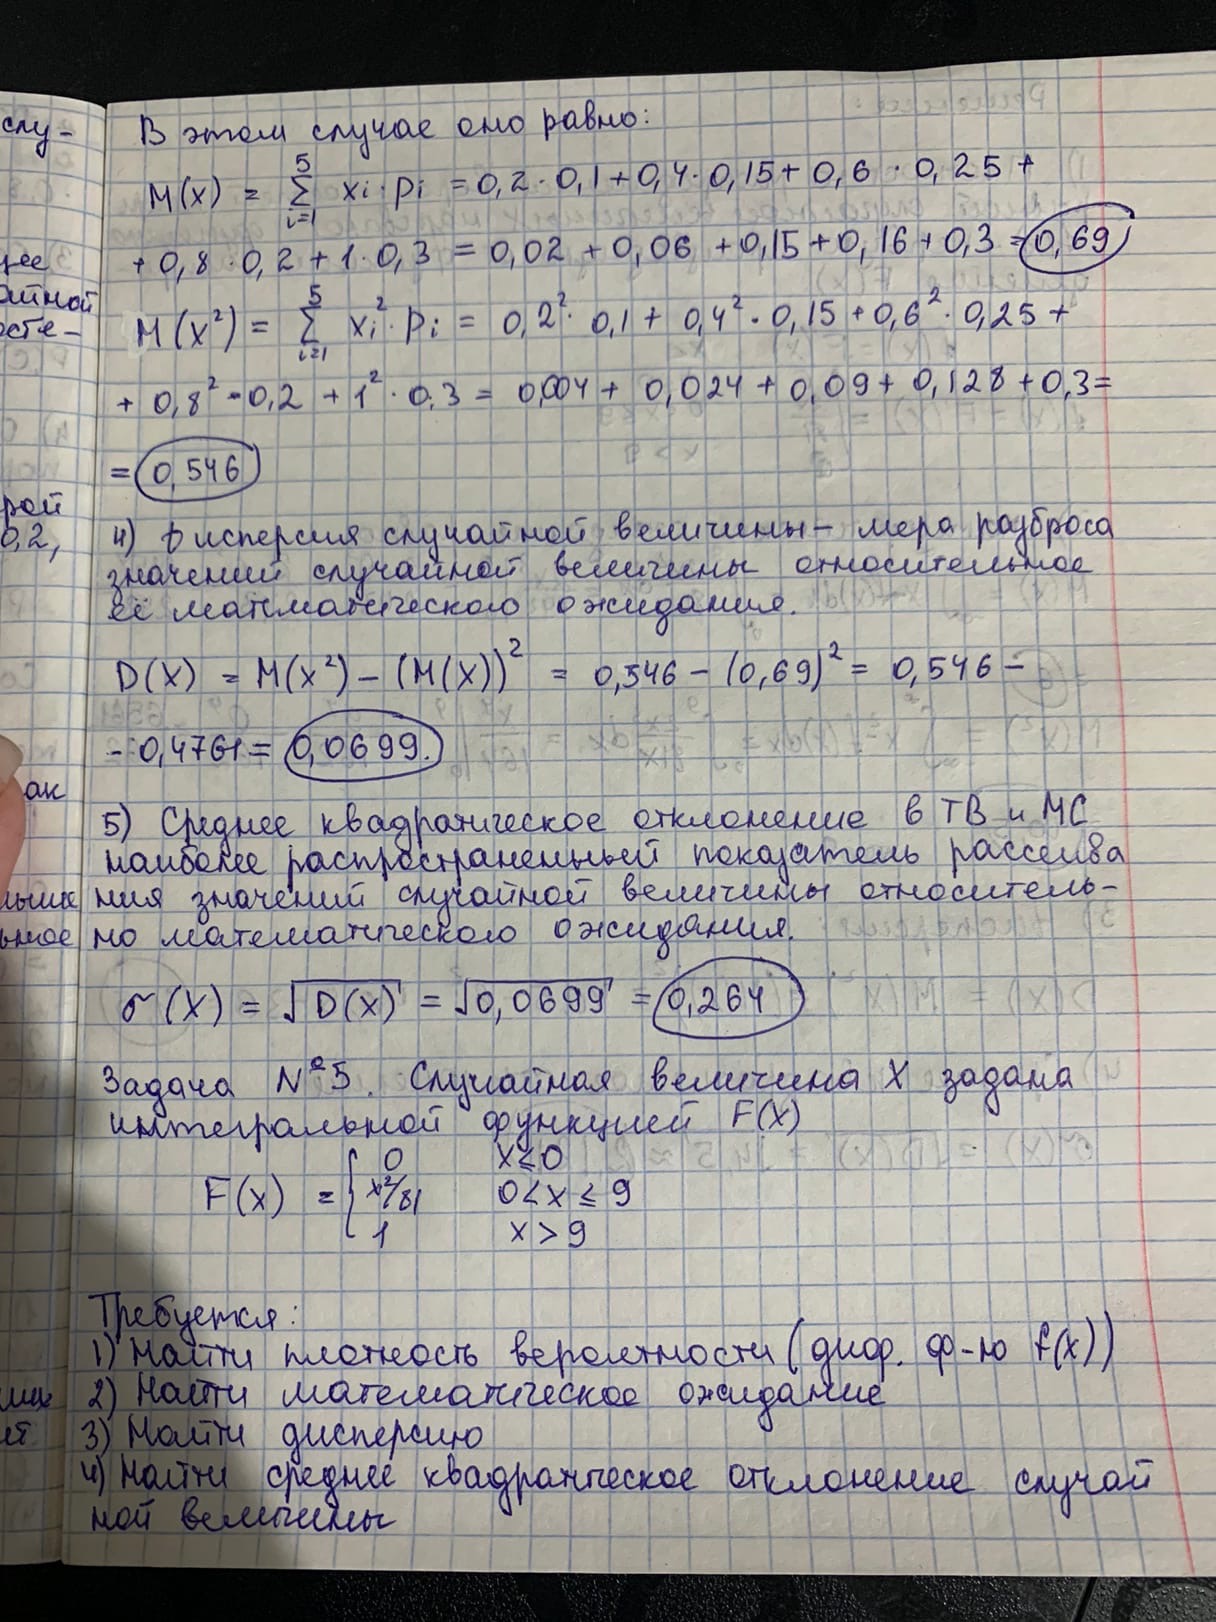 слу-
В этом случае оно равно:
M(x) = Σ⁵ᵢ₌₁ xi · pi = 0,2 · 0,1 + 0,4 · 0,15 + 0,6 · 0,25 +
+ 0,8 · 0,2 + 1 · 0,3 = 0,02 + 0,06 + 0,15 + 0,16 + 0,3 = 0,69
M(x²) = Σ⁵ᵢ₌₁ xi² · pi = 0,2² · 0,1 + 0,4² · 0,15 + 0,6² · 0,25 +
+ 0,8² · 0,2 + 1² · 0,3 = 0,004 + 0,024 + 0,09 + 0,128 + 0,3 =
= 0,546
рой
0,2,
4) Дисперсия случайной величины – мера разброса
значений случайной величины относительное
её математического ожидания.
D(X) = M(x²) – (M(X))² = 0,546 – (0,69)² = 0,546 –
– 0,4761 = 0,0699.
ак
5) Среднее квадратическое отклонение в ТВ и МС
наиболее распространенный показатель рассеива
ния значений случайной величины относитель-
но математического ожидания.
σ(X) = √D(x) = √0,0699 = 0,264
Задача №5. Случайная величина X задана
интегральной функцией F(X)
F(x) = { 0 x ≤ 0
x²/81 0 < x ≤ 9
1 x > 9
Требуется:
1) Найти плотность вероятности (диф. ф-ю f(x))
2) Найти математическое ожидание
3) Найти дисперсию
4) Найти среднее квадратическое отклонение случай
ной величины